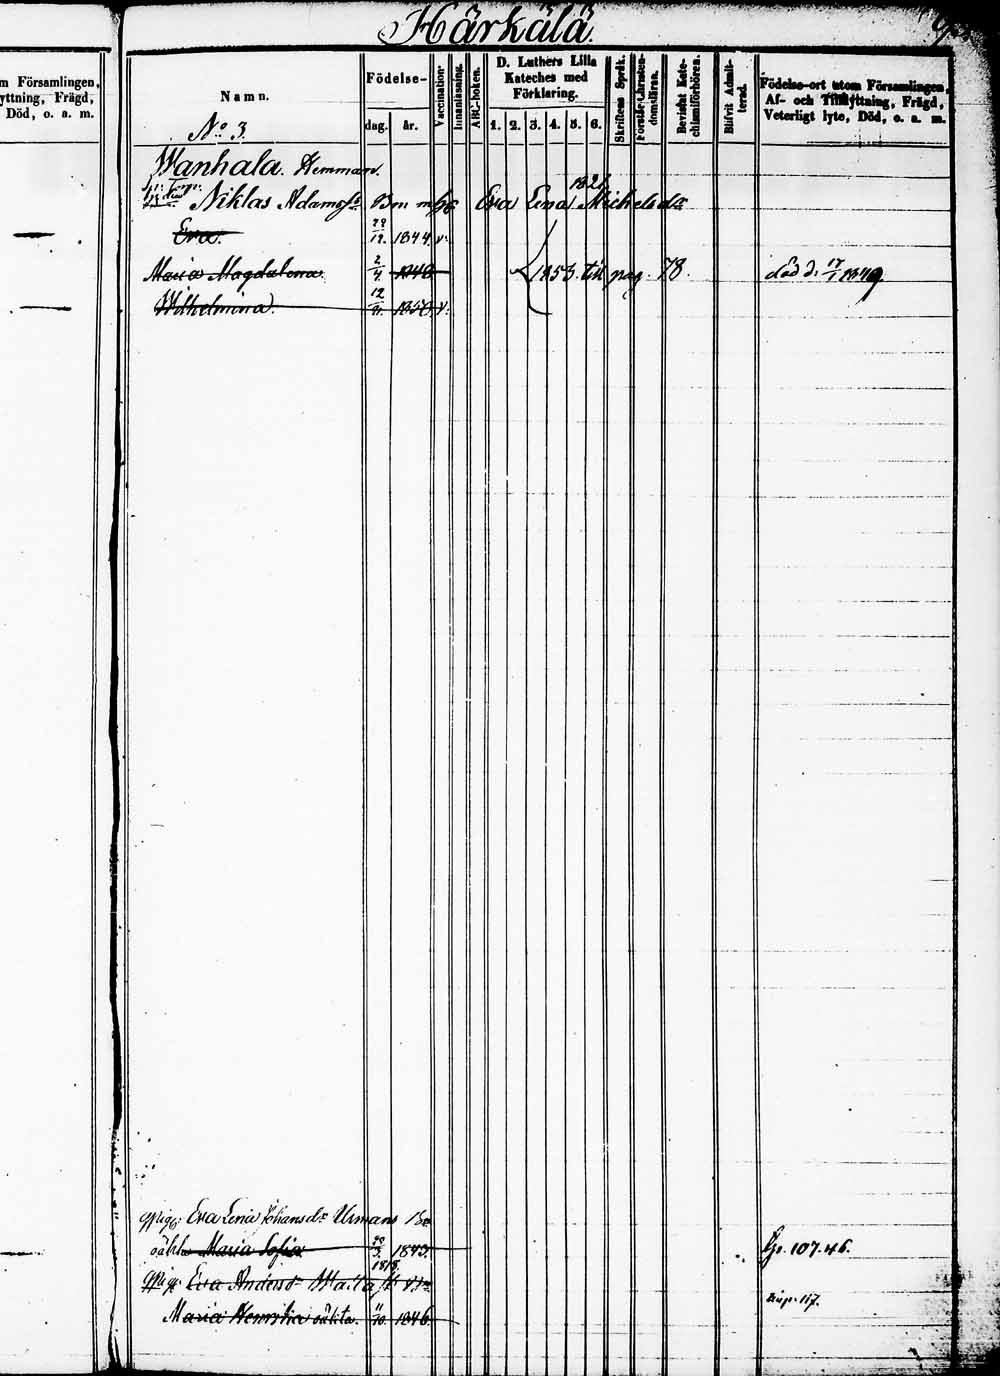 Härkälä.
m Församlingen,
yttning, Frägd,
Död, o. a. m.
Namn.
Födelse-
dag. år.
Vaccination
Innanläsning.
ABC-boken.
D. Luthers Lilla
Kateches med
Förklaring.
1. 2. 3. 4. 5. 6.
Skriftens Språk.
Förstår Christen-
domsläran.
Bevistat Kate-
chismiförhören.
Blifvit Admit-
terad.
Födelse-ort utom Församlingen,
Af- och Tillflyttning, Frägd,
Veterligt lyte, Död, o. a. m.
No 3.
Wanhala. Hemman.
1821
Niklas Adamss: Bm Eva Lena Michelsdr
Eva. 12. 1844. v.
Maria Magdalena 2/4 1848 1853. till pag. 78. död d. 17/1 1849.
Wilhelmina. 12 1850 v.
Eva Lena Johansdr Urmans
Maria Sofia 1843. 107. 46.
1818
Eva Anders
117.
Maria Henrika oäkta. 11/10. 1846